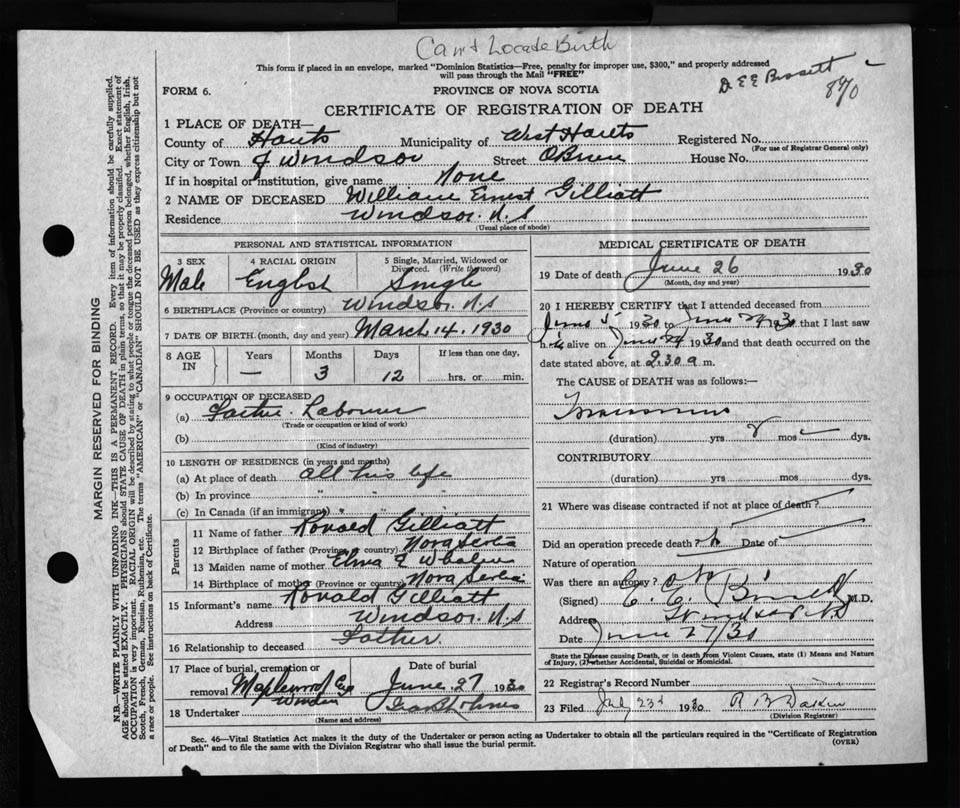 Can't Locate Birth
This form if placed in an envelope, marked "Dominion Statistics—Free, penalty for improper use, $300," and properly addressed
will pass through the Mail "FREE"
Dr E E Bissett
870
FORM 6.
PROVINCE OF NOVA SCOTIA
CERTIFICATE OF REGISTRATION OF DEATH
1 PLACE OF DEATH—
County of Hants Municipality of West Hants Registered No.
(For use of Registrar General only)
City or Town of Windsor Street OBrien House No.
If in hospital or institution, give name None
2 NAME OF DECEASED William Ernest Gilliatt
Residence Windsor. N.S
(Usual place of abode)
PERSONAL AND STATISTICAL INFORMATION
3 SEX 4 RACIAL ORIGIN 5 Single, Married, Widowed or
Divorced. (Write the word)
Male English Single
6 BIRTHPLACE (Province or country) Windsor N.S
7 DATE OF BIRTH (month, day and year) March 14. 1930
8 AGE IN Years Months Days If less than one day,
— 3 12 hrs. or min.
9 OCCUPATION OF DECEASED
(a) Labourer
(Trade or occupation or kind of work)
(b)
(Kind of industry)
10 LENGTH OF RESIDENCE (in years and months)
(a) At place of death all his life
(b) In province " "
(c) In Canada (if an immigrant) " "
Parents
11 Name of father Ronald Gilliatt
12 Birthplace of father (Province or country) Nova Scotia
13 Maiden name of mother
14 Birthplace of mother (Province or country) Nova Scotia
15 Informant's name Ronald Gilliatt
Address Windsor. N.S
16 Relationship to deceased Father
17 Place of burial, cremation or
removal Maplewood
Windsor
Date of burial
June 27 1930
18 Undertaker
(Name and address)
MEDICAL CERTIFICATE OF DEATH
19 Date of death June 26 1930
(Month, day and year)
20 I HEREBY CERTIFY that I attended deceased from
1930 to 1930 that I last saw
alive on 1930 and that death occurred on the
date stated above, at 2.30 a m.
The CAUSE OF DEATH was as follows:—
(duration) yrs mos dys.
CONTRIBUTORY
(duration) yrs. mos. dys.
21 Where was disease contracted if not at place of death?
Did an operation precede death? Date of
Nature of operation
Was there an autopsy?
(Signed) M.D.
Address
Date June 27/30
State the Disease causing Death, or in death from Violent Causes, state (1) Means and Nature
of Injury, (2) whether Accidental, Suicidal or Homicidal.
22 Registrar's Record Number
23 Filed July 23d 1930
(Division Registrar)
Sec. 46—Vital Statistics Act makes it the duty of the Undertaker or person acting as Undertaker to obtain all the particulars required in the "Certificate of Registration
of Death" and to file the same with the Division Registrar who shall issue the burial permit.
(OVER)
MARGIN RESERVED FOR BINDING
N.B.—WRITE PLAINLY WITH UNFADING INK—THIS IS A PERMANENT RECORD. Every item of information should be carefully supplied.
AGE should be stated EXACTLY. PHYSICIANS should STATE CAUSE OF DEATH in plain terms, so that it may be properly classified. Exact statement of
OCCUPATION is very important. RACIAL ORIGIN will be described by stating to what people or tongue the deceased person belonged, whether English, Irish,
Scotch, French, German, Russian, Ruthenian, etc. The terms "AMERICAN" or "CANADIAN" SHOULD NOT BE USED as they express citizenship but not
a race or people. See instructions on back of Certificate.